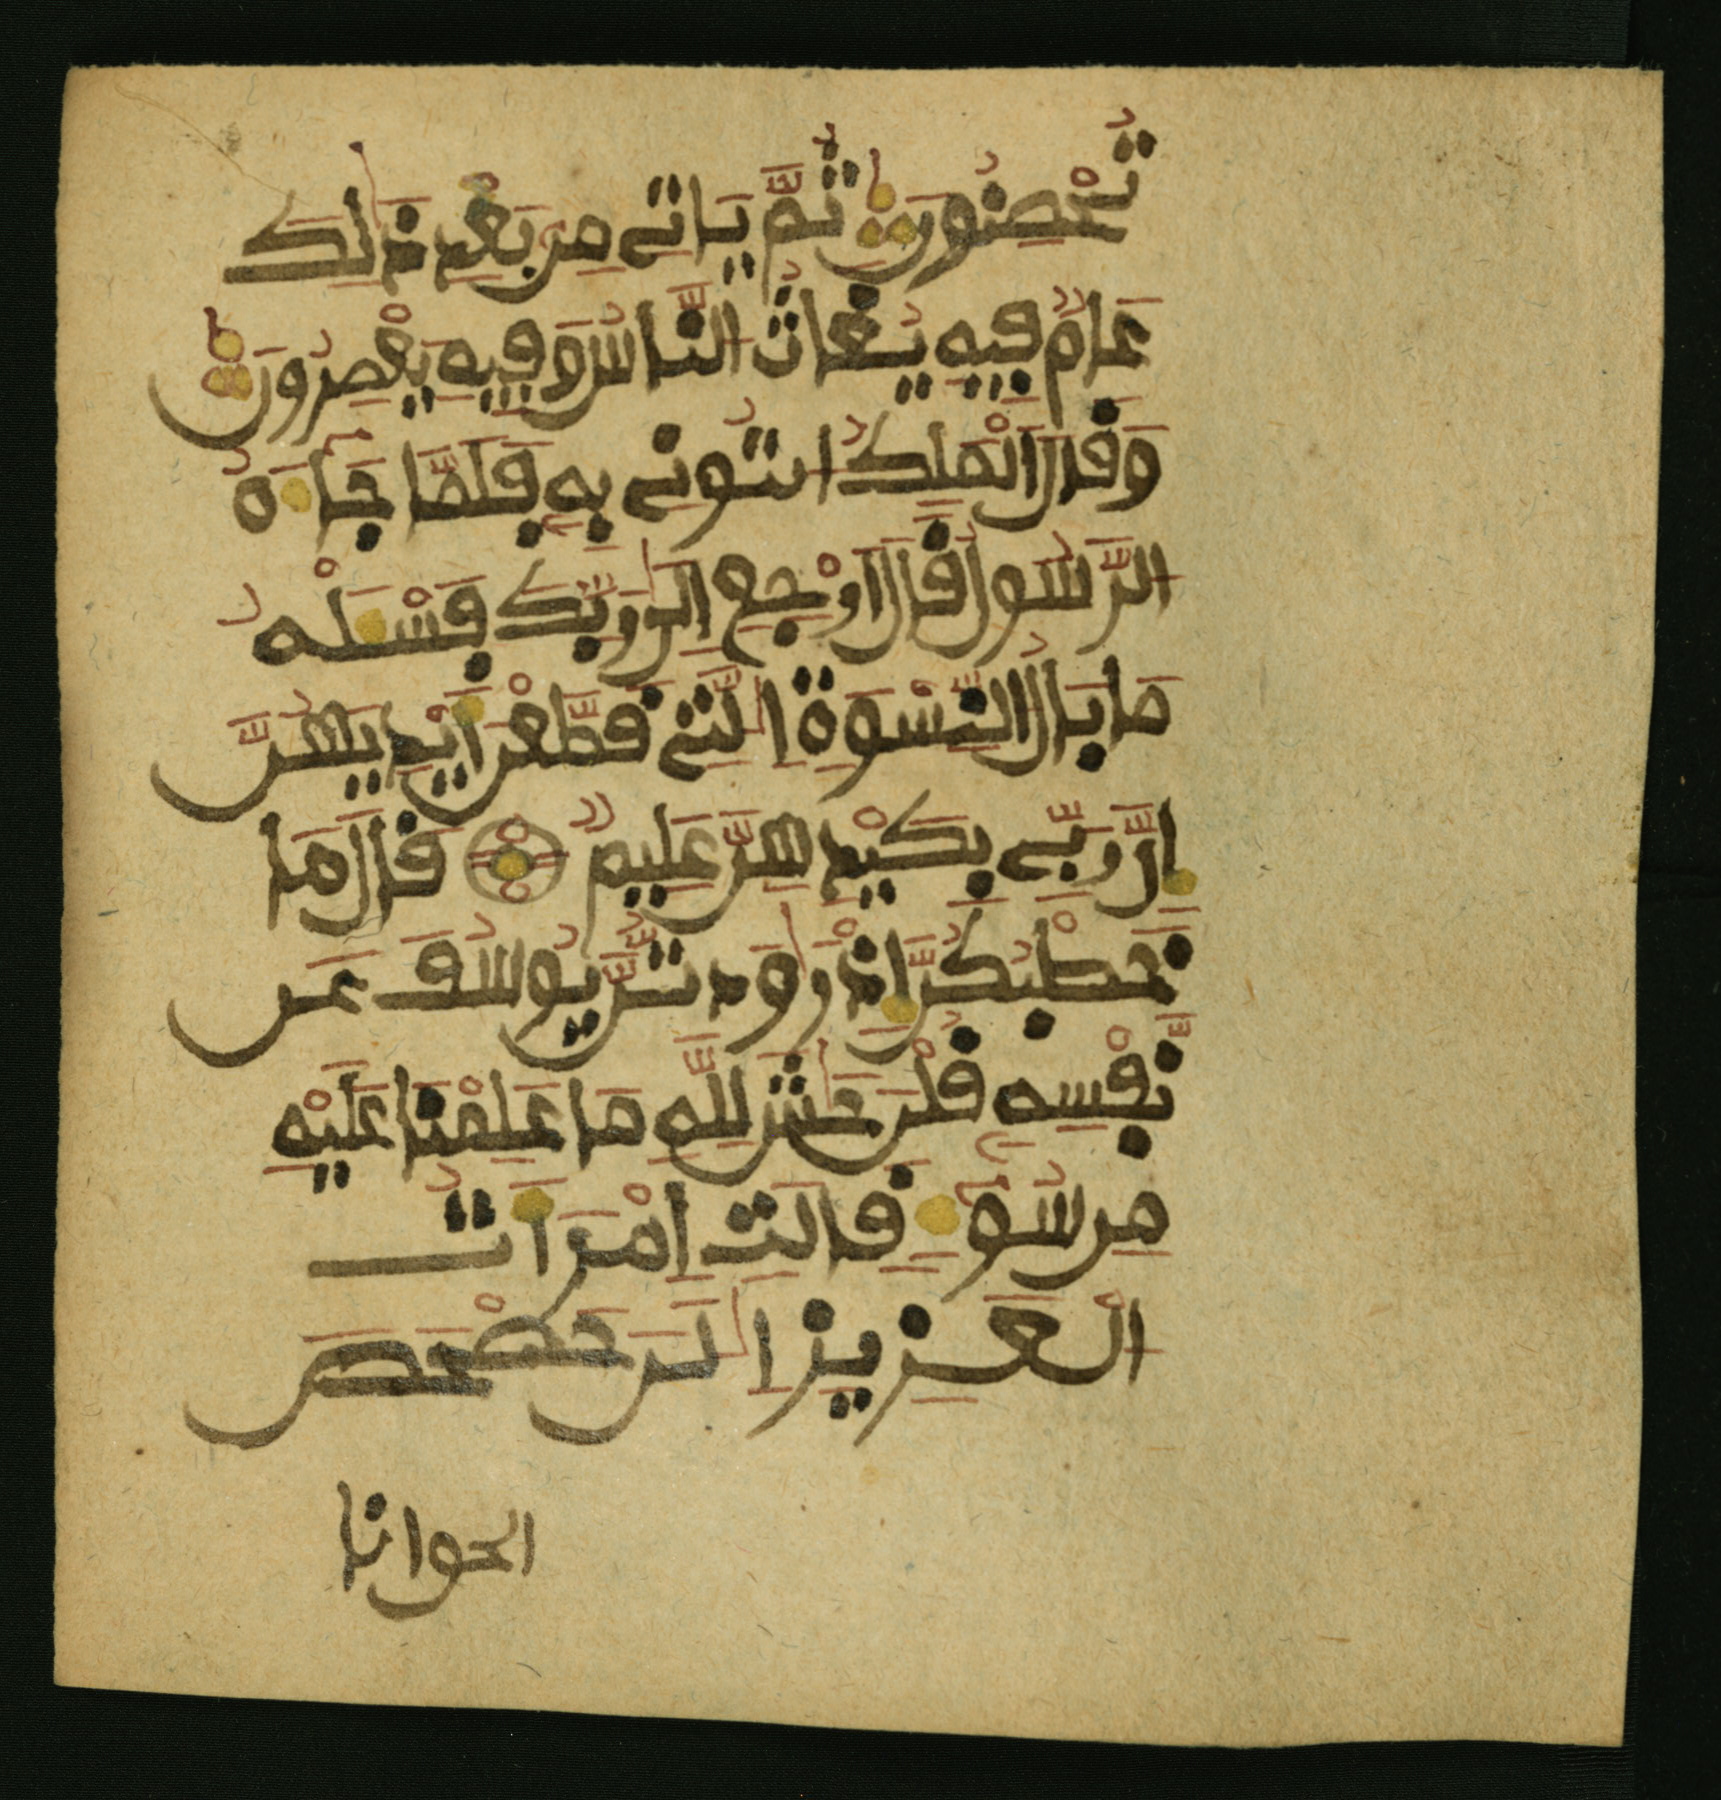 تُحْصِنُونَ ثُمَّ يَاتِے مِن بَعْدِ ذَٰلِكَ
عَامٌ فِيهِ يُغَاثُ النَّاسُ وَفِيهِ يَعْصِرُونَ
وَقَالَ اَلْمَلِكُ ايتُونِے بِهِ فَلَمَّا جَآءَهُ
الرَّسُولُ قَالَ اَرْجِعِ الَىٰ رَبِّكَ فَسْـَٔلْهُ
مَا بَالُ النِّسْوَةِ اِلَّٰتِے قَطَّعْنَ أَيْدِيَهُنَّ
إِنَّ رَبِّے بِكَيْدِهِنَّ عَلِيمٌ قَالَ مَا
خَطْبُكُنَّ إِذْ رَٰوَدتُّنَّ يُوسُفَ عَن
نَّفْسِهِ قُلْنَ حَٰشَ لِلَّهِ مَا عَلِمْنَا عَلَيْهِ
مِن سُوٓءٍ قَالَتِ اِمْرَأَتُ
الْعَزِيزِ اِلَٰنَ حَصْحَصَ
الحوانا